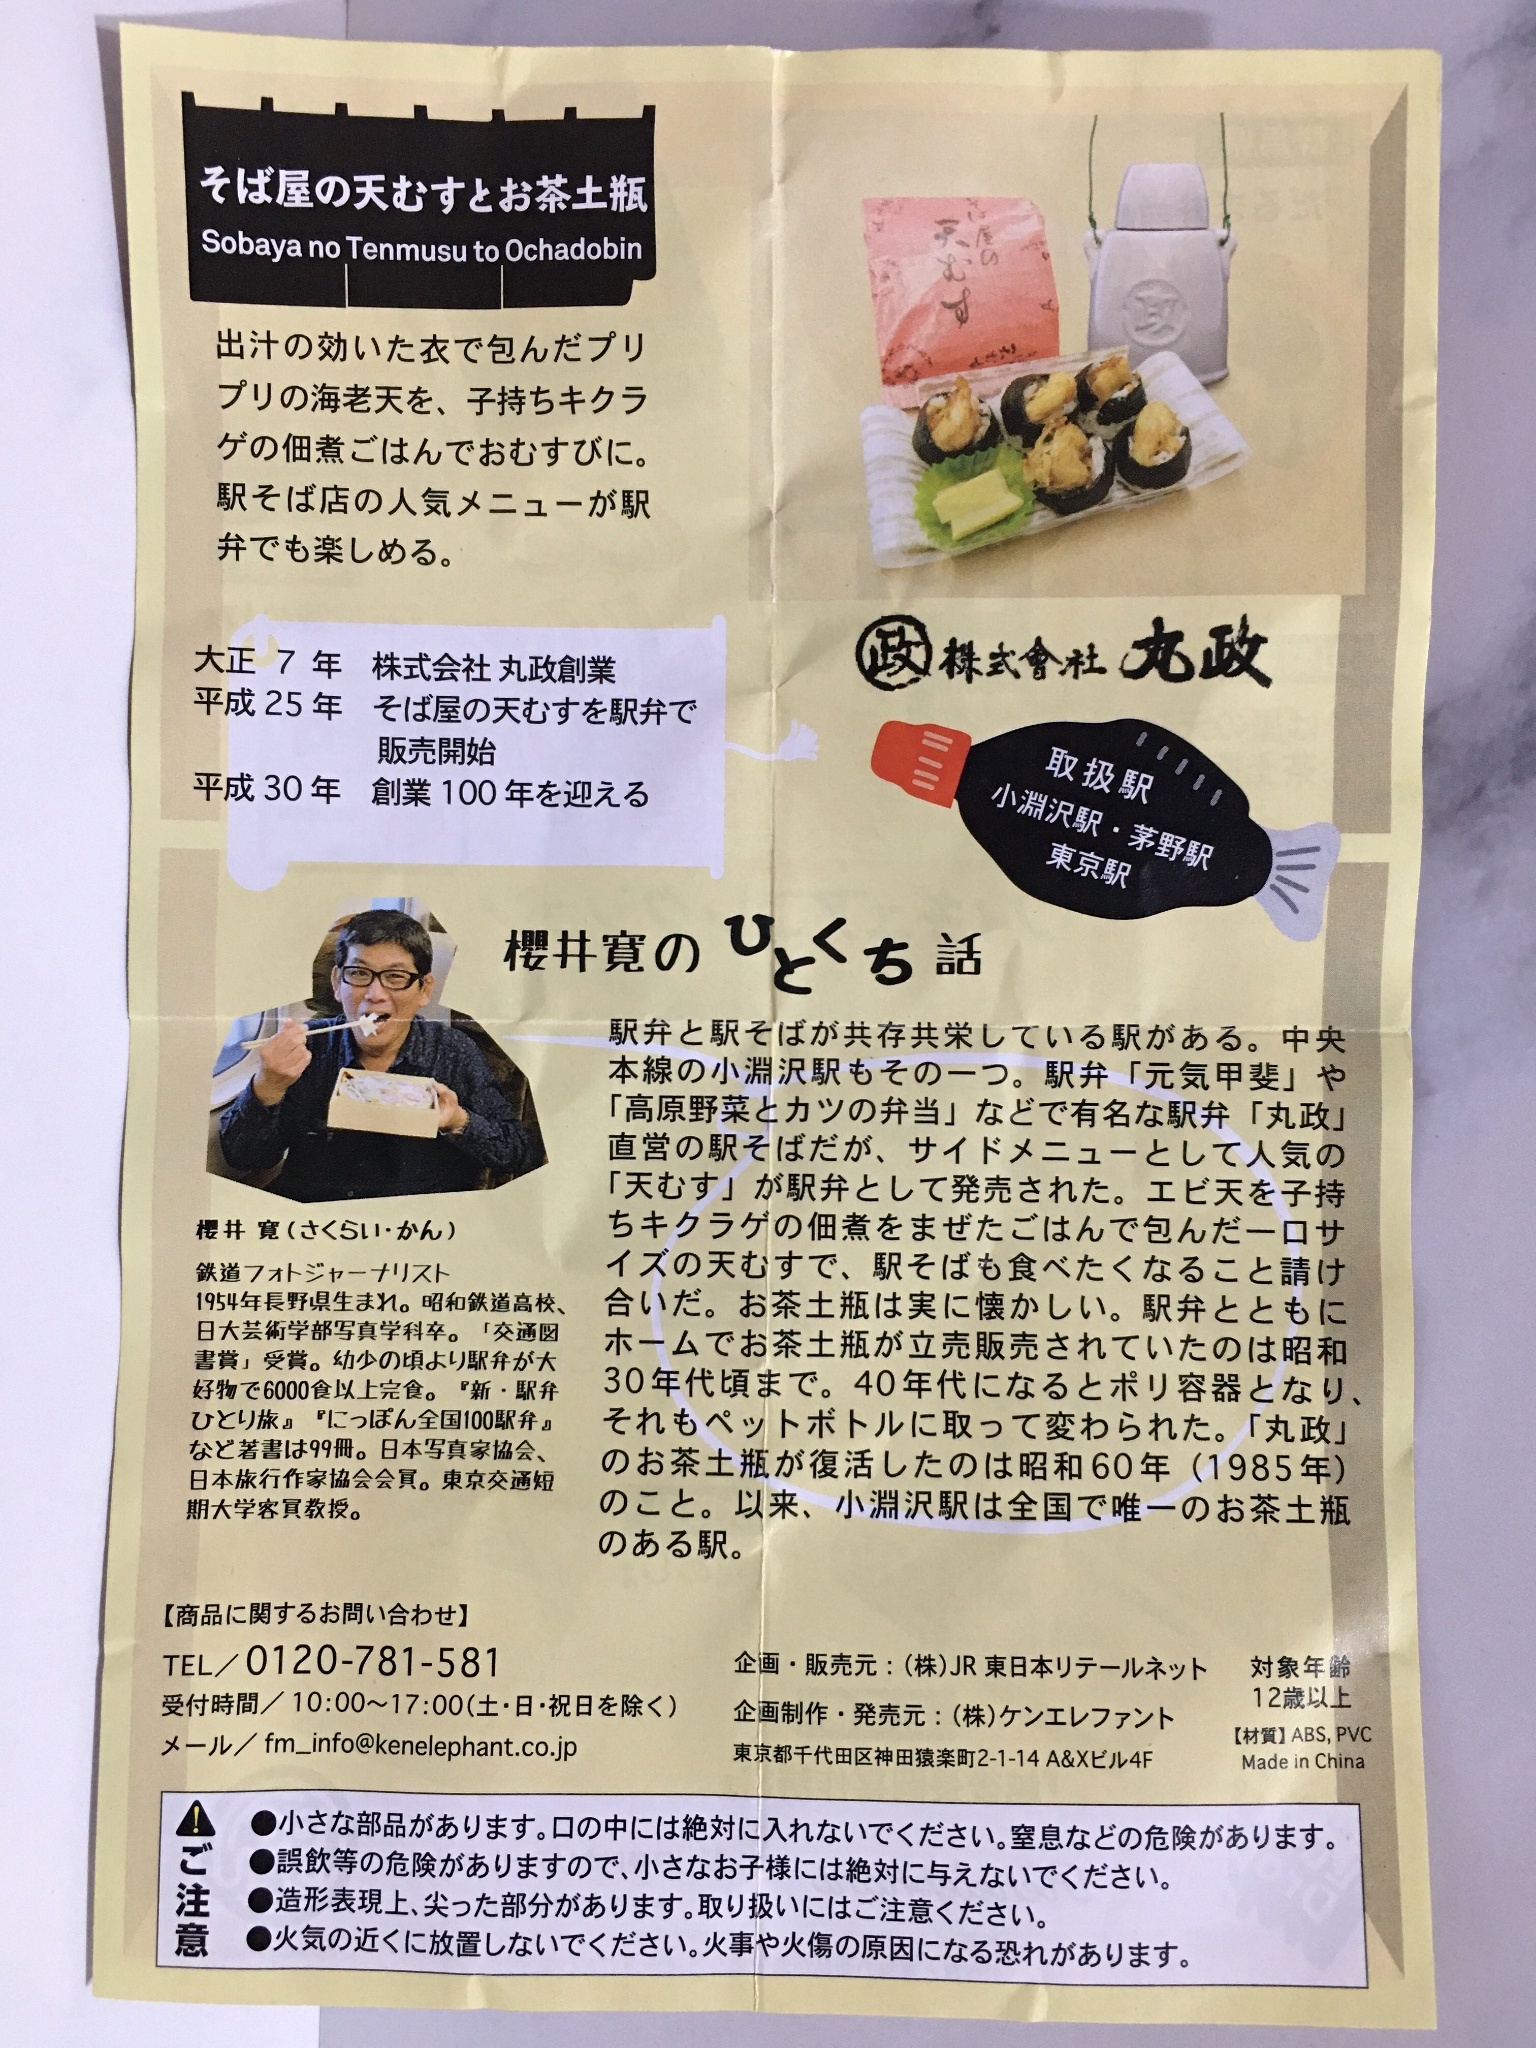 そば屋の天むすとお茶土瓶
Sobaya no Tenmusu to Ochadobin
出汁の効いた衣で包んだプリ
プリの海老天を、子持ちキクラ
ゲの佃煮ごはんでおむすびに。
駅そば店の人気メニューが駅
弁でも楽しめる。
天むす
大正 7 年 株式会社 丸政創業
平成 25 年 そば屋の天むすを駅弁で
販売開始
平成 30 年 創業 100 年を迎える
政 株式會社 丸政
取扱駅
小淵沢駅・茅野駅
東京駅
櫻井寛のひとくち話
駅弁と駅そばが共存共栄している駅がある。中央
本線の小淵沢駅もその一つ。駅弁「元気甲斐」や
「高原野菜とカツの弁当」などで有名な駅弁「丸政」
直営の駅そばだが、サイドメニューとして人気の
「天むす」が駅弁として発売された。エビ天を子持
ちキクラゲの佃煮をまぜたごはんで包んだ一口サ
イズの天むすで、駅そばも食べたくなること請け
合いだ。お茶土瓶は実に懐かしい。駅弁とともに
ホームでお茶土瓶が立売販売されていたのは昭和
30年代頃まで。40年代になるとポリ容器となり、
それもペットボトルに取って変わられた。「丸政」
のお茶土瓶が復活したのは昭和60年（1985年）
のこと。以来、小淵沢駅は全国で唯一のお茶土瓶
のある駅。
櫻井 寛（さくらい・かん）
鉄道フォトジャーナリスト
1954年長野県生まれ。昭和鉄道高校、
日大芸術学部写真学科卒。「交通図
書賞」受賞。幼少の頃より駅弁が大
好物で6000食以上完食。『新・駅弁
ひとり旅』『にっぽん全国100駅弁』
など著書は99冊。日本写真家協会、
日本旅行作家協会会員。東京交通短
期大学客員教授。
【商品に関するお問い合わせ】
TEL／0120-781-581
受付時間／10:00〜17:00（土・日・祝日を除く）
メール／fm_info@kenelephant.co.jp
企画・販売元：（株）JR 東日本リテールネット
企画制作・発売元：（株）ケンエレファント
東京都千代田区神田猿楽町2-1-14 A&Xビル4F
対象年齢
12歳以上
【材質】ABS, PVC
Made in China
ご注意
●小さな部品があります。口の中には絶対に入れないでください。窒息などの危険があります。
●誤飲等の危険がありますので、小さなお子様には絶対に与えないでください。
●造形表現上、尖った部分があります。取り扱いにはご注意ください。
●火気の近くに放置しないでください。火事や火傷の原因になる恐れがあります。